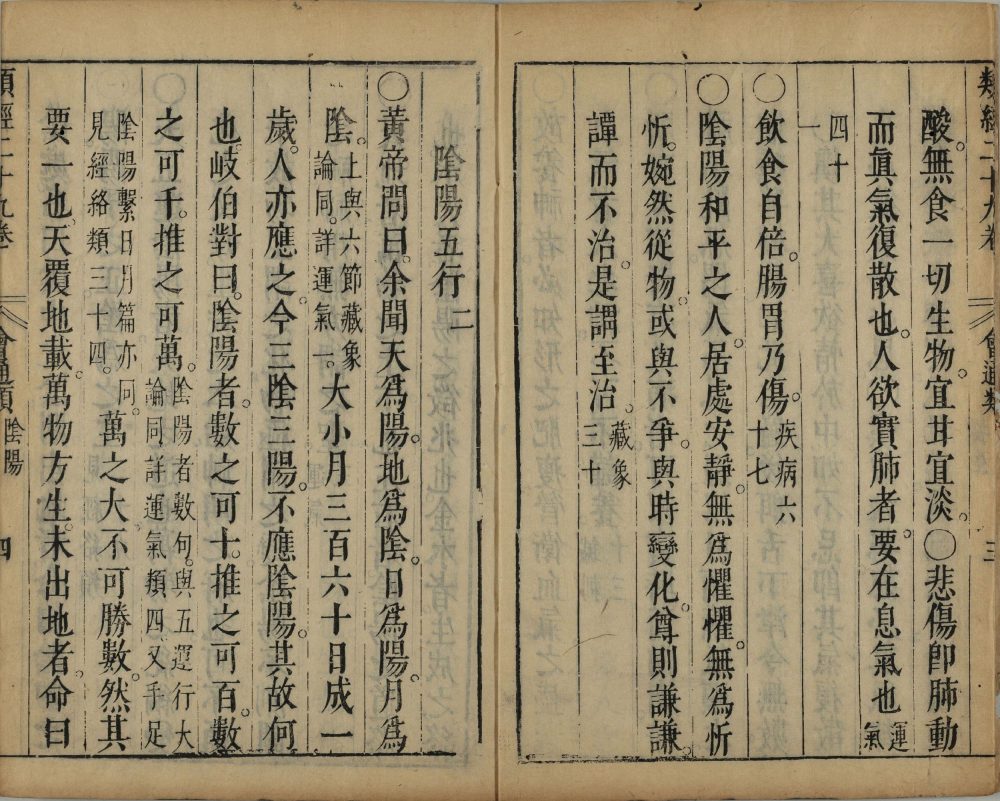 類經二十九卷 會通類 三
酸。無食一切生物。宜甘宜淡。〇悲傷卽肺動
而眞氣復散也。人欲實肺者。要在息氣也運氣
四十一
〇飲食自倍。腸胃乃傷。疾病六十七
〇陰陽和平之人。居處安靜。無爲懼懼。無爲忻
忻。婉然從物。或與不爭。與時變化。尊則謙謙。
譚而不治。是謂至治藏象三十
陰陽五行二
〇黃帝問曰。余聞天爲陽。地爲陰。日爲陽。月爲
陰。上與六節藏象論同。詳運氣一。大小月三百六十日成一
歲。人亦應之。今三陰三陽。不應陰陽。其故何
也。岐伯對曰。陰陽者。數之可十。推之可百。數
之可千。推之可萬。陰陽者數句。與五運行大論同詳運氣類四又手足
陰陽繫日月篇亦同。見經絡類三十四。萬之大不可勝數。然其
要一也。天覆地載。萬物方生。未出地者。命曰
類經二十九卷 會通類 陰陽 四